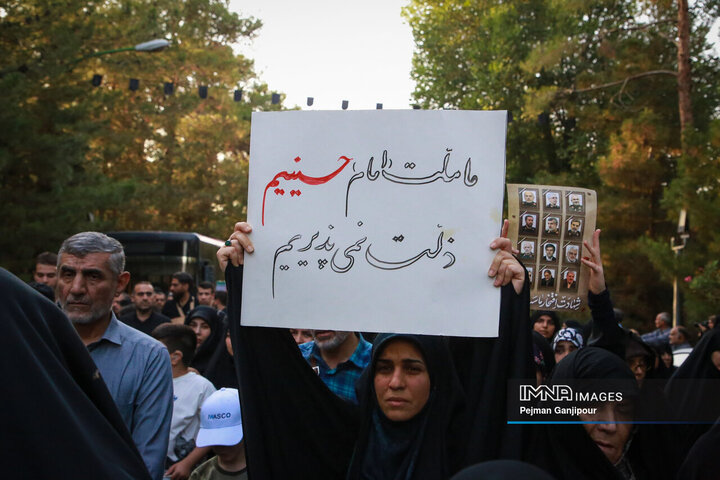 ما ملت امام حسینیم
ذلت نمی پذیریم
شهادت افتخار ماست
IMASCO
IMNA IMAGES
Pejman Ganjipour